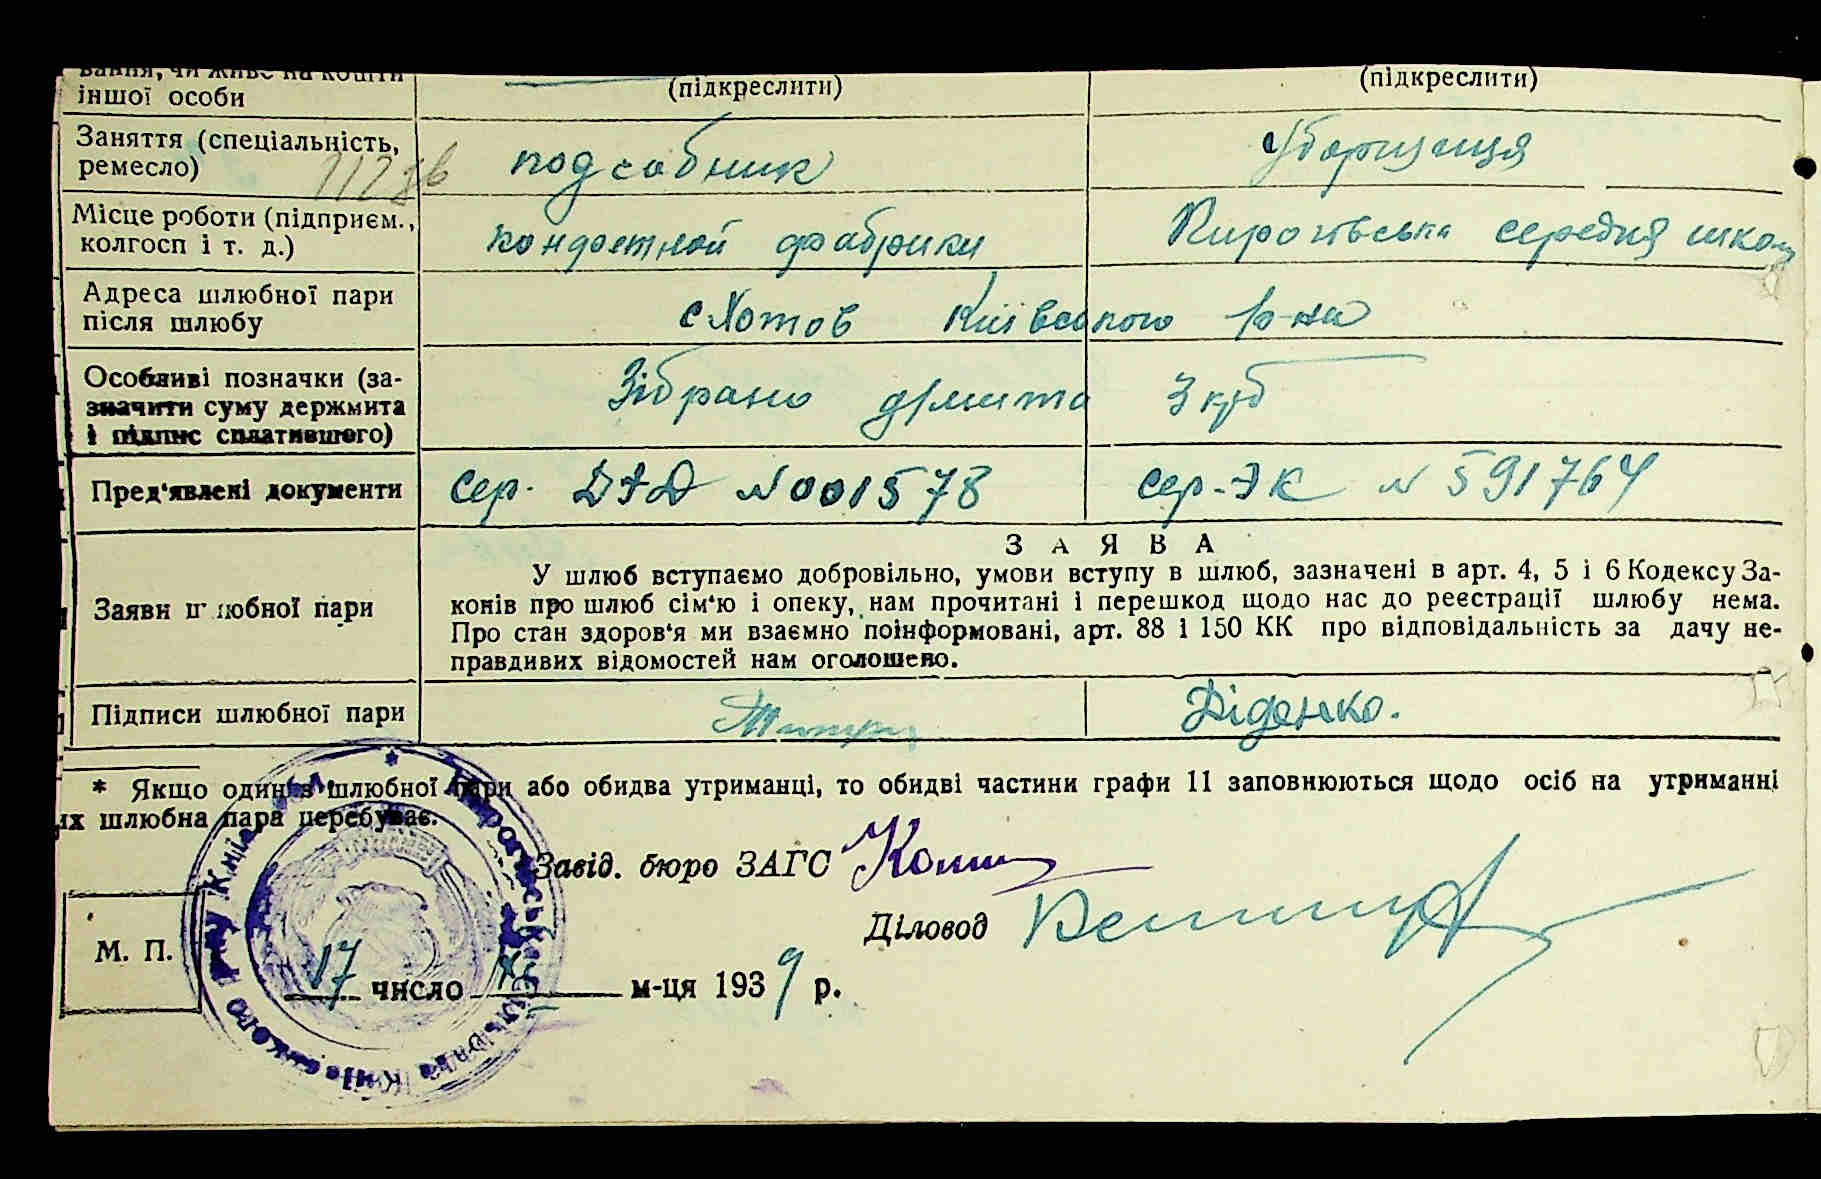 вання, чи живе на кошти
іншої особи
(підкреслити)
(підкреслити)
Заняття (спеціальність,
ремесло)
подсобник
Уборщиця
Місце роботи (підприєм.,
колгосп і т. д.)
кондетной фабрики
середня школ
Адреса шлюбної пари
після шлюбу
с Хотов Київського р-на
Особливі позначки (за-
значити суму держмита
і підпис сплатившого)
Зібрано д/мита 3 крб
Пред'явлені документи
Сер. № 001578
Сер-ЭК № 591764
З А Я В А
Заяви шлюбної пари
У шлюб вступаємо добровільно, умови вступу в шлюб, зазначені в арт. 4, 5 і 6 Кодексу За-
конів про шлюб сім'ю і опеку, нам прочитані і перешкод щодо нас до реєстрації шлюбу нема.
Про стан здоров'я ми взаємно поінформовані, арт. 88 і 150 КК про відповідальність за дачу не-
правдивих відомостей нам оголошено.
Підписи шлюбної пари
Діденко.
* Якщо один з шлюбної пари або обидва утриманці, то обидві частини графи 11 заповнюються щодо осіб на утриманні
их шлюбна пара перебуває.
Завід. бюро ЗАГС
Діловод
М. П.
17 число X м-ця 1939 р.